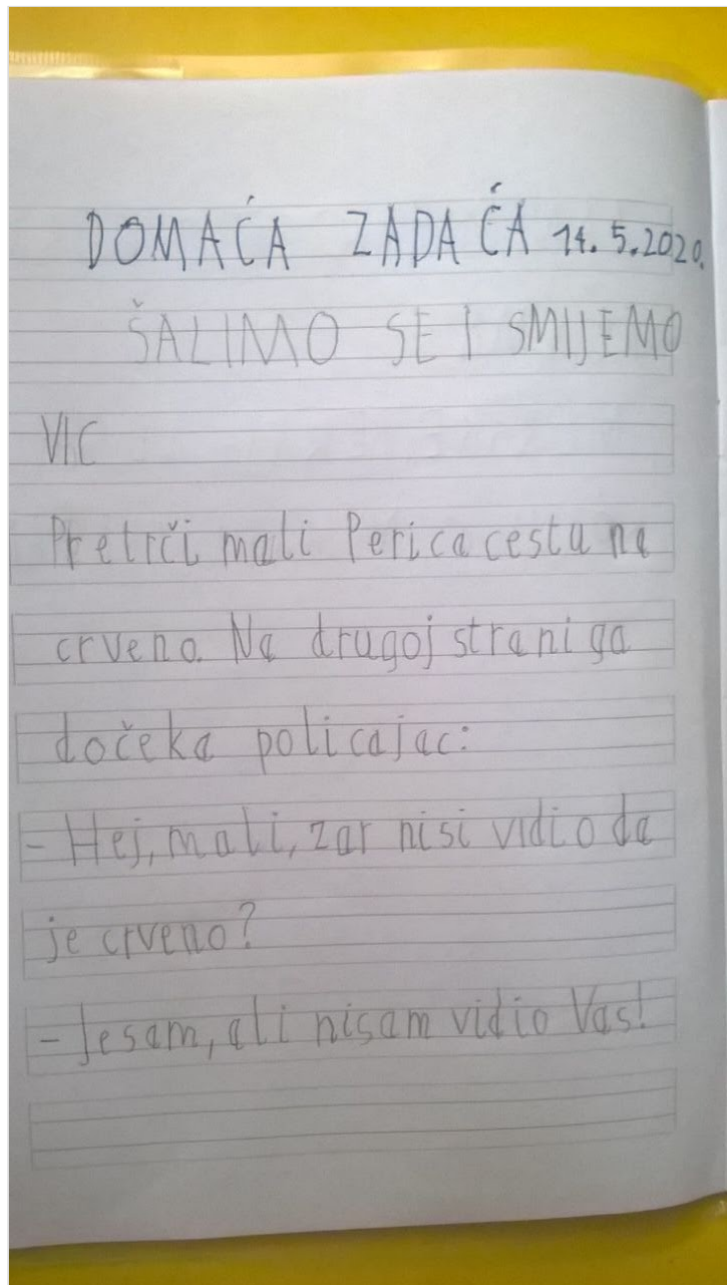 DOMAĆA ZADAĆA 14.5.2020.
ŠALIMO SE I SMIJEMO
VIC
Pretrči mali Perica cestu na
crveno. Na drugoj strani ga
dočeka policajac:
- Hej, mali, zar nisi vidio da
je crveno?
- Jesam, ali nisam vidio Vas!